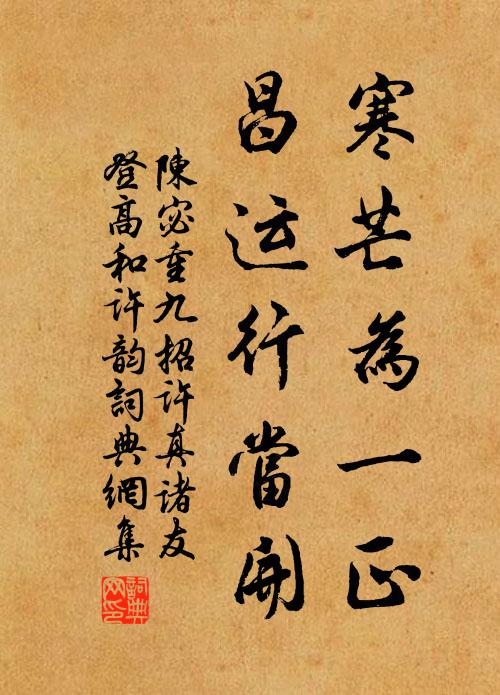 寒芒為一正
昌运行當開
陳宓重九招許真諸友
登高和许韵詞典網集
詞典網印